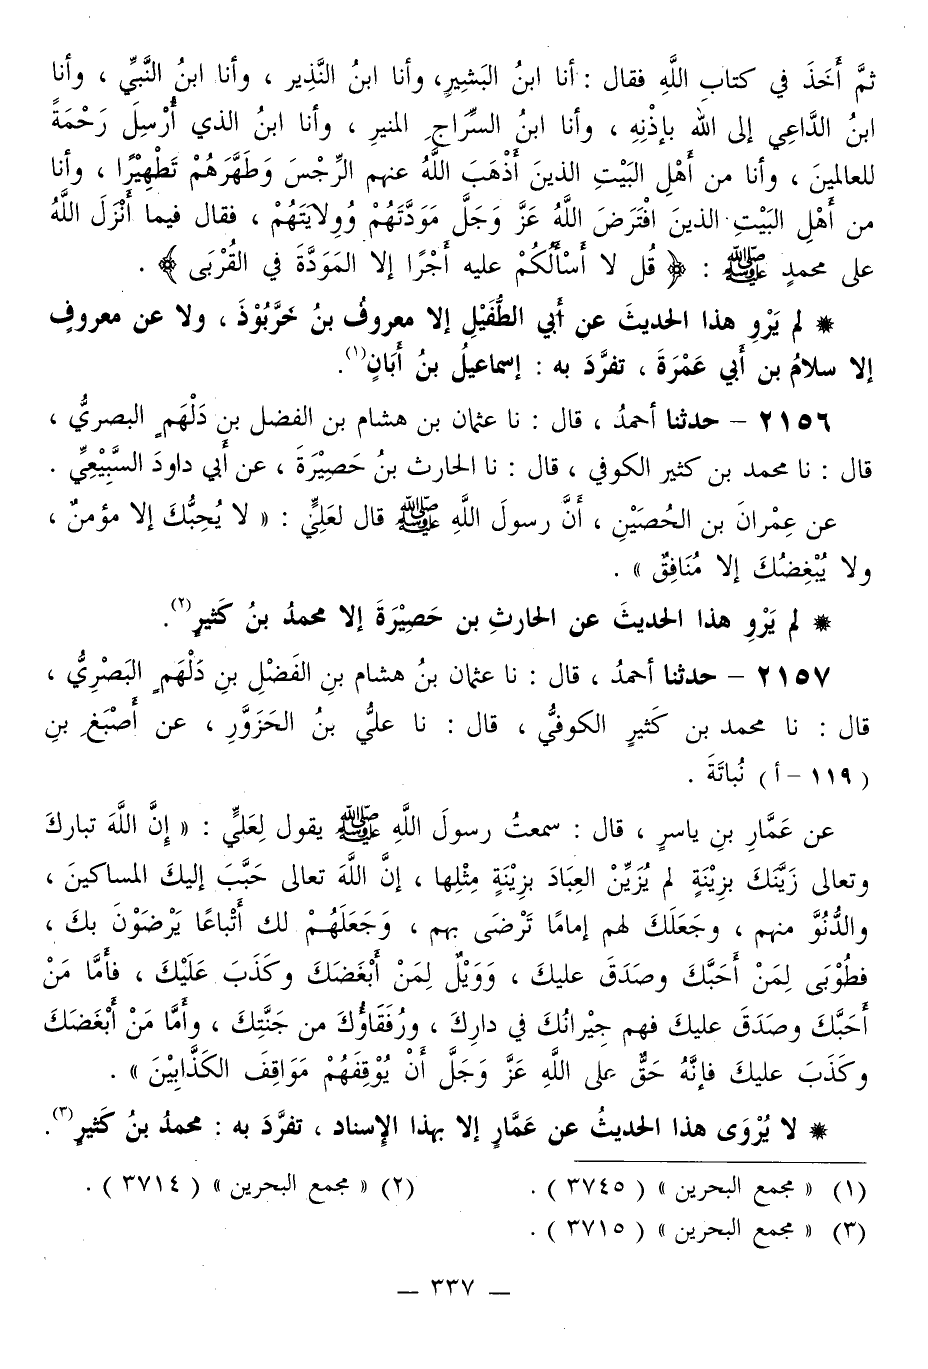 ثمَّ أَخَذَ في كتابِ اللَّهِ فقال : أنا ابنُ البَشيرِ، وأنا ابنُ النَّذِير ، وأنا ابنُ النَّبيِّ ، وأنا
ابنُ الدَّاعِي إلى الله بإذْنِهِ ، وأنا ابنُ السِّرَاجِ المنيرِ ، وأنا ابنُ الذي أُرْسِلَ رَحْمَةً
للعالمينَ ، وأنا من أَهْلِ البَيْتِ الذينَ أَذْهَبَ اللَّهُ عنهم الرِّجْسَ وَطَهَّرَهُمْ تَطْهِيْرًا ، وأنا
من أَهْلِ البَيْتِ الذينَ افْتَرَضَ اللَّهُ عَزَّ وَجَلَّ مَوَدَّتَهُمْ وَوِلايَتَهُمْ ، فقال فيما أَنْزَلَ اللَّهُ
على محمدٍ ﷺ : ﴿ قُل لا أَسْأَلُكُمْ عليه أَجْرًا إلا المَوَدَّةَ في القُرْبَى ﴾ .
* لم يَرْوِ هذا الحديثَ عن أَبي الطُّفَيْلِ إلا معروفُ بنُ خَرَّبُوْذَ ، ولا عن معروفٍ
إلا سلامُ بن أَبي عَمْرَةَ ، تفرَّدَ به : إسماعيلُ بنُ أَبَانٍ(١).
٢١٥٦ – حدثنا أحمدُ ، قال : نا عثمان بن هشام بن الفضل بنِ دَلْهَمٍ البصريُّ ،
قال : نا محمد بن كثير الكوفي ، قال : نا الحارث بنُ حَصِيْرَةَ ، عن أَبي داودَ السَّبِيْعِيِّ .
عن عِمْرانَ بن الحُصَيْنِ ، أَنَّ رسولَ اللَّهِ ﷺ قال لعَلِيٍّ : « لا يُحِبُّكَ إلا مؤمنٌ ،
ولا يُبْغِضُكَ إلا مُنَافِقٌ » .
* لم يَرْوِ هذا الحديثَ عن الحارثِ بن حَصِيْرَةَ إلا محمدُ بنُ كَثيرٍ(٢).
٢١٥٧ – حدثنا أحمدُ ، قال : نا عثمان بنُ هشام بنِ الفَضْلِ بنِ دَلْهَمٍ البَصْرِيُّ ،
قال : نا محمد بن كَثيرٍ الكوفيُّ ، قال : نا عليُّ بنُ الحَزَوَّرِ ، عن أَصْبَغِ بنِ
( ١١٩ – أ ) نُباتَةَ .
عن عَمَّارِ بنِ ياسرٍ ، قال : سمعتُ رسولَ اللَّهِ ﷺ يقول لِعَلِيٍّ : « إِنَّ اللَّهَ تباركَ
وتعالى زَيَّنَكَ بزِيْنَةٍ لم يُزَيِّنْ العِبَادَ بزِيْنَةٍ مِثْلِها ، إنَّ اللَّهَ تعالى حَبَّبَ إليكَ المساكينَ ،
والدُّنُوَّ منهم ، وجَعَلَكَ لهم إمامًا تَرْضَى بهم ، وَجَعَلَهُمْ لك أَتْباعًا يَرْضَوْنَ بكَ ،
فطُوْبَى لِمَنْ أَحَبَّكَ وصَدَقَ عليكَ ، وَوَيْلٌ لِمَنْ أَبْغَضَكَ وكَذَبَ عَلَيْكَ ، فأَمَّا مَنْ
أَحَبَّكَ وصَدَقَ عليكَ فهم جِيْرانُكَ في دارِكَ ، ورُفَقَاؤُكَ من جَنَّتِكَ ، وأَمَّا مَنْ أَبْغَضَكَ
وكَذَبَ عليكَ فإِنَّهُ حَقٌّ على اللَّهِ عَزَّ وَجَلَّ أَنْ يُوْقِفَهُمْ مَوَاقِفَ الكَذَّابِيْنَ » .
* لا يُرْوَى هذا الحديثُ عن عَمَّارٍ إلا بهذا الإسناد ، تفرَّدَ به : محمدُ بنُ كَثيرٍ(٣).
(١) « مجمع البحرين » ( ٣٧٤٥ ) . (٢) « مجمع البحرين » ( ٣٧١٤ ) .
(٣) « مجمع البحرين » ( ٣٧١٥ ) .
– ٣٣٧ –